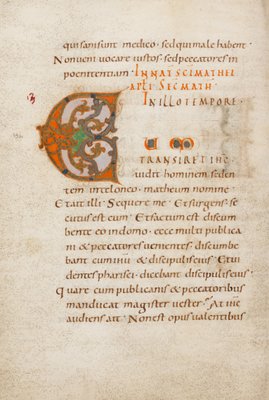 qui sani sunt medico · sed qui male habent ·
Non veni vocare iustos · sed peccatores in
poenitentiam · IN NAT SCI MATHEI
APLI SEC MATH
IN ILLO TEMPORE ·
CUM
TRANSIRET IHC
vidit hominem seden
tem in teloneo · matheum nomine ·
Et ait illi · Sequere me · Et surgens · se
cutus est eum · Et factum est discum
bente eo in domo · ecce multi publica
ni & peccatores venientes · discumbe
bant cum ihu & discipulis eius · Et vi
dentes pharisei · dicebant discipulis eius ·
Quare cum publicanis & peccatoribus
manducat magister vester · At ihc
audiens ait · Non est opus valentibus